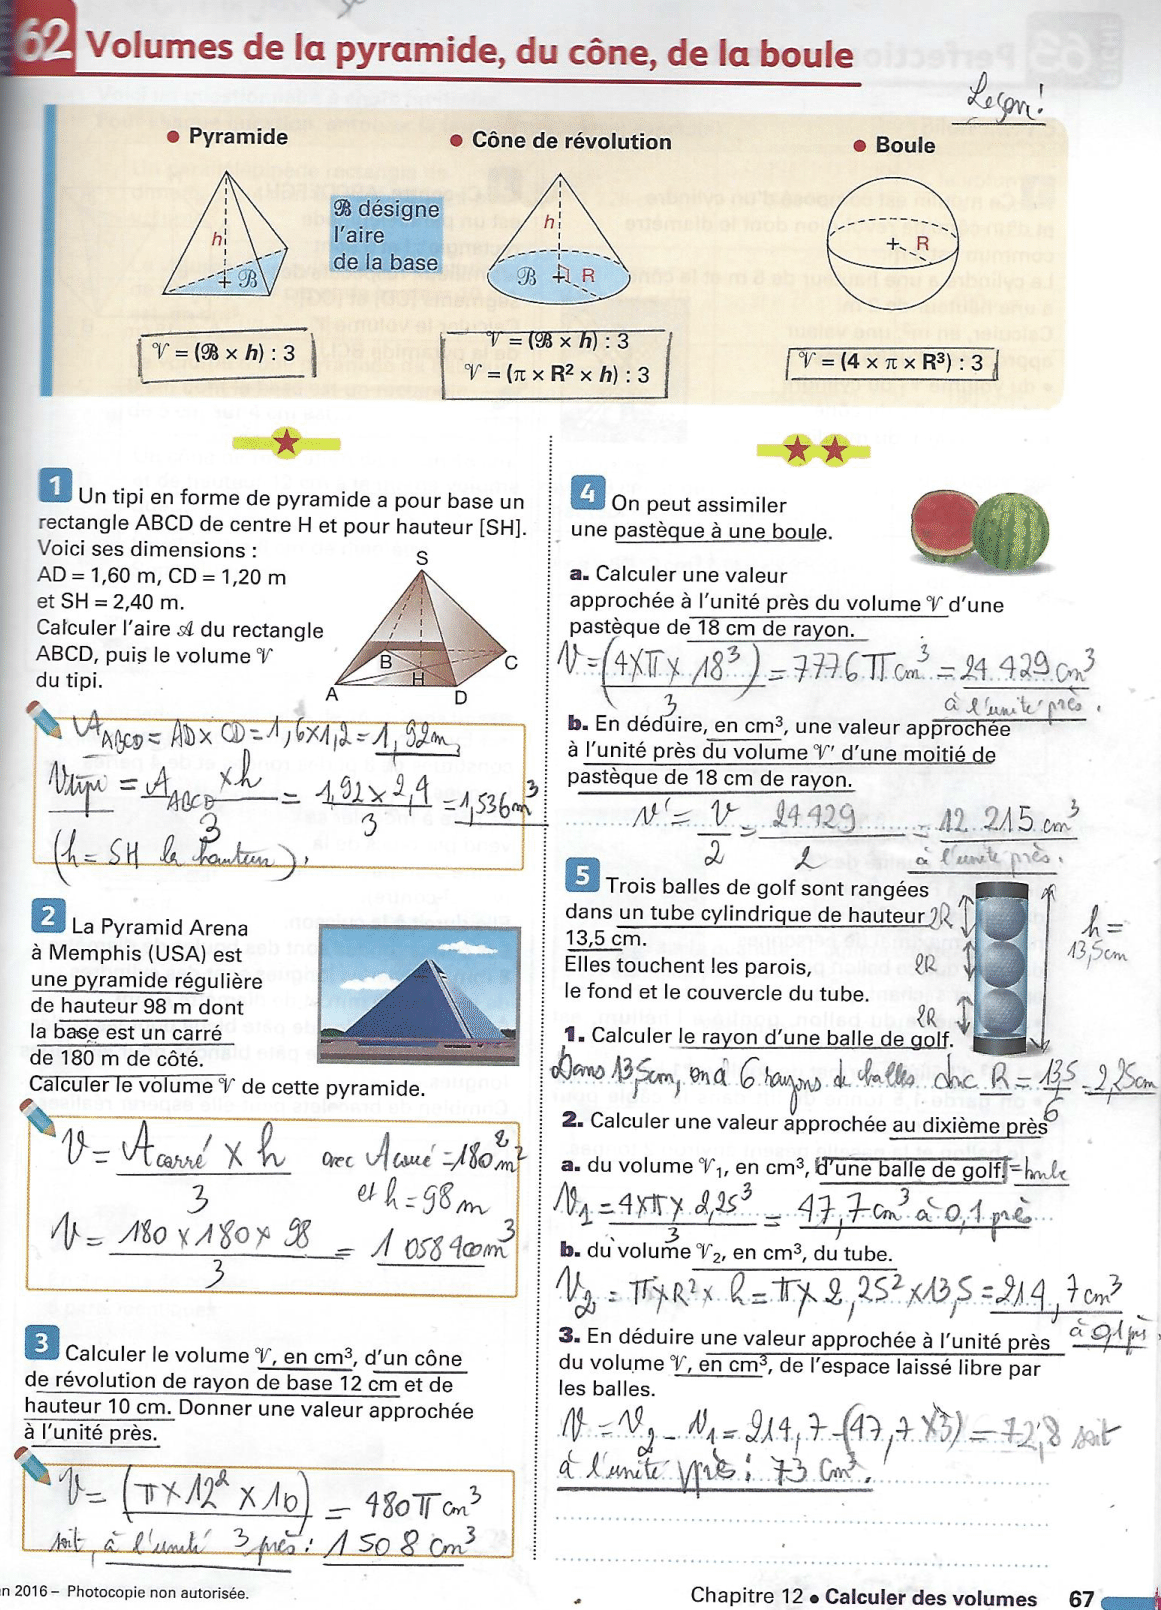 62 Volumes de la pyramide, du cône, de la boule
Leçon!
• Pyramide
h
ℬ
𝒱 = (ℬ × h) : 3
ℬ désigne
l'aire
de la base
• Cône de révolution
h
ℬ
R
𝒱 = (ℬ × h) : 3
𝒱 = (π × R² × h) : 3
• Boule
R
𝒱 = (4 × π × R³) : 3
1 Un tipi en forme de pyramide a pour base un
rectangle ABCD de centre H et pour hauteur [SH].
Voici ses dimensions :
AD = 1,60 m, CD = 1,20 m
et SH = 2,40 m.
Calculer l'aire 𝒜 du rectangle
ABCD, puis le volume 𝒱
du tipi.
S
B
C
H
A
D
A ABCD = AD x CD = 1,6 x 1,2 = 1,92m
Vtipi = A ABCD x h / 3 = 1,92 x 2,4 / 3 = 1,536 m³
(h = SH la hauteur).
2 La Pyramid Arena
à Memphis (USA) est
une pyramide régulière
de hauteur 98 m dont
la base est un carré
de 180 m de côté.
Calculer le volume 𝒱 de cette pyramide.
V = A carré x h / 3 avec A carré = 180² m²
et h = 98 m
V = 180 x 180 x 98 / 3 = 1 058 400 m³
3 Calculer le volume 𝒱, en cm³, d'un cône
de révolution de rayon de base 12 cm et de
hauteur 10 cm. Donner une valeur approchée
à l'unité près.
V = (π x 12² x 10) / 3 = 480 π cm³
soit, à l'unité près : 1 508 cm³
4 On peut assimiler
une pastèque à une boule.
a. Calculer une valeur
approchée à l'unité près du volume 𝒱 d'une
pastèque de 18 cm de rayon.
V = (4 x π x 18³) / 3 = 7776 π cm³ = 24 429 cm³
à l'unité près.
b. En déduire, en cm³, une valeur approchée
à l'unité près du volume 𝒱' d'une moitié de
pastèque de 18 cm de rayon.
V' = V / 2 = 24 429 / 2 = 12 215 cm³
à l'unité près.
5 Trois balles de golf sont rangées
dans un tube cylindrique de hauteur
13,5 cm.
Elles touchent les parois,
le fond et le couvercle du tube.
2R
2R
2R
h =
13,5cm
1. Calculer le rayon d'une balle de golf.
Dans 13,5cm, on a 6 rayons de balles donc R = 13,5 / 6 = 2,25cm
2. Calculer une valeur approchée au dixième près
a. du volume 𝒱₁, en cm³, d'une balle de golf. = boule
V₁ = 4 x π x 2,25³ / 3 = 47,7 cm³ à 0,1 près
b. du volume 𝒱₂, en cm³, du tube.
V₂ = π x R² x h = π x 2,25² x 13,5 = 214,7 cm³
à 0,1 près.
3. En déduire une valeur approchée à l'unité près
du volume 𝒱, en cm³, de l'espace laissé libre par
les balles.
V = V₂ - V₁ = 214,7 - (47,7 x 3) = 72,8 soit
à l'unité près : 73 cm³.
n 2016 – Photocopie non autorisée.
Chapitre 12 • Calculer des volumes 67